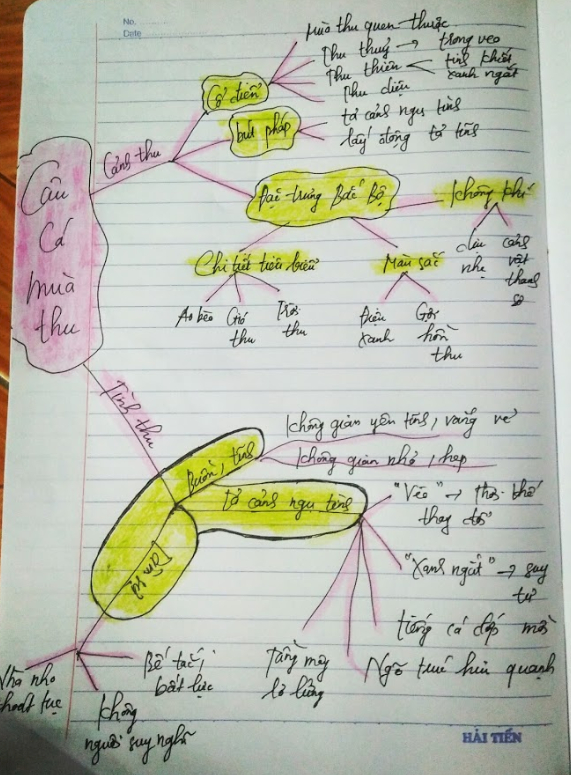 No.
Date
Câu
Cá
mùa
thu
Cảnh thu
Cổ điển
Mùa thu quen thuộc
Thu thuỷ → trong veo
Thu thiên
tĩnh
xanh ngắt
Thu diệu
bút pháp
tả cảnh ngụ tình
lấy động tả tĩnh
Đặc trưng Bắc Bộ
Không khí
dịu
nhẹ
cảnh
vật
thanh
sơ
Chi tiết tiêu biểu
Ao bèo
Gió
thu
Trời
thu
Màu sắc
Điệu
xanh
Gợi
hồn
thu
Tình thu
Buồn, tĩnh
Không gian yên tĩnh, vắng vẻ
Không gian nhỏ, hẹp
tả cảnh ngụ tình
"Vèo" → thời thế
thay đổi
"Xanh ngắt" → suy
tư
tiếng cá đớp mồi
Ngõ trúc hiu quạnh
Tầng mây
lơ lửng
Tâm sự
Bế tắc,
bất lực
Không
người suy nghĩ
Nhà nho
HẢI TIẾN